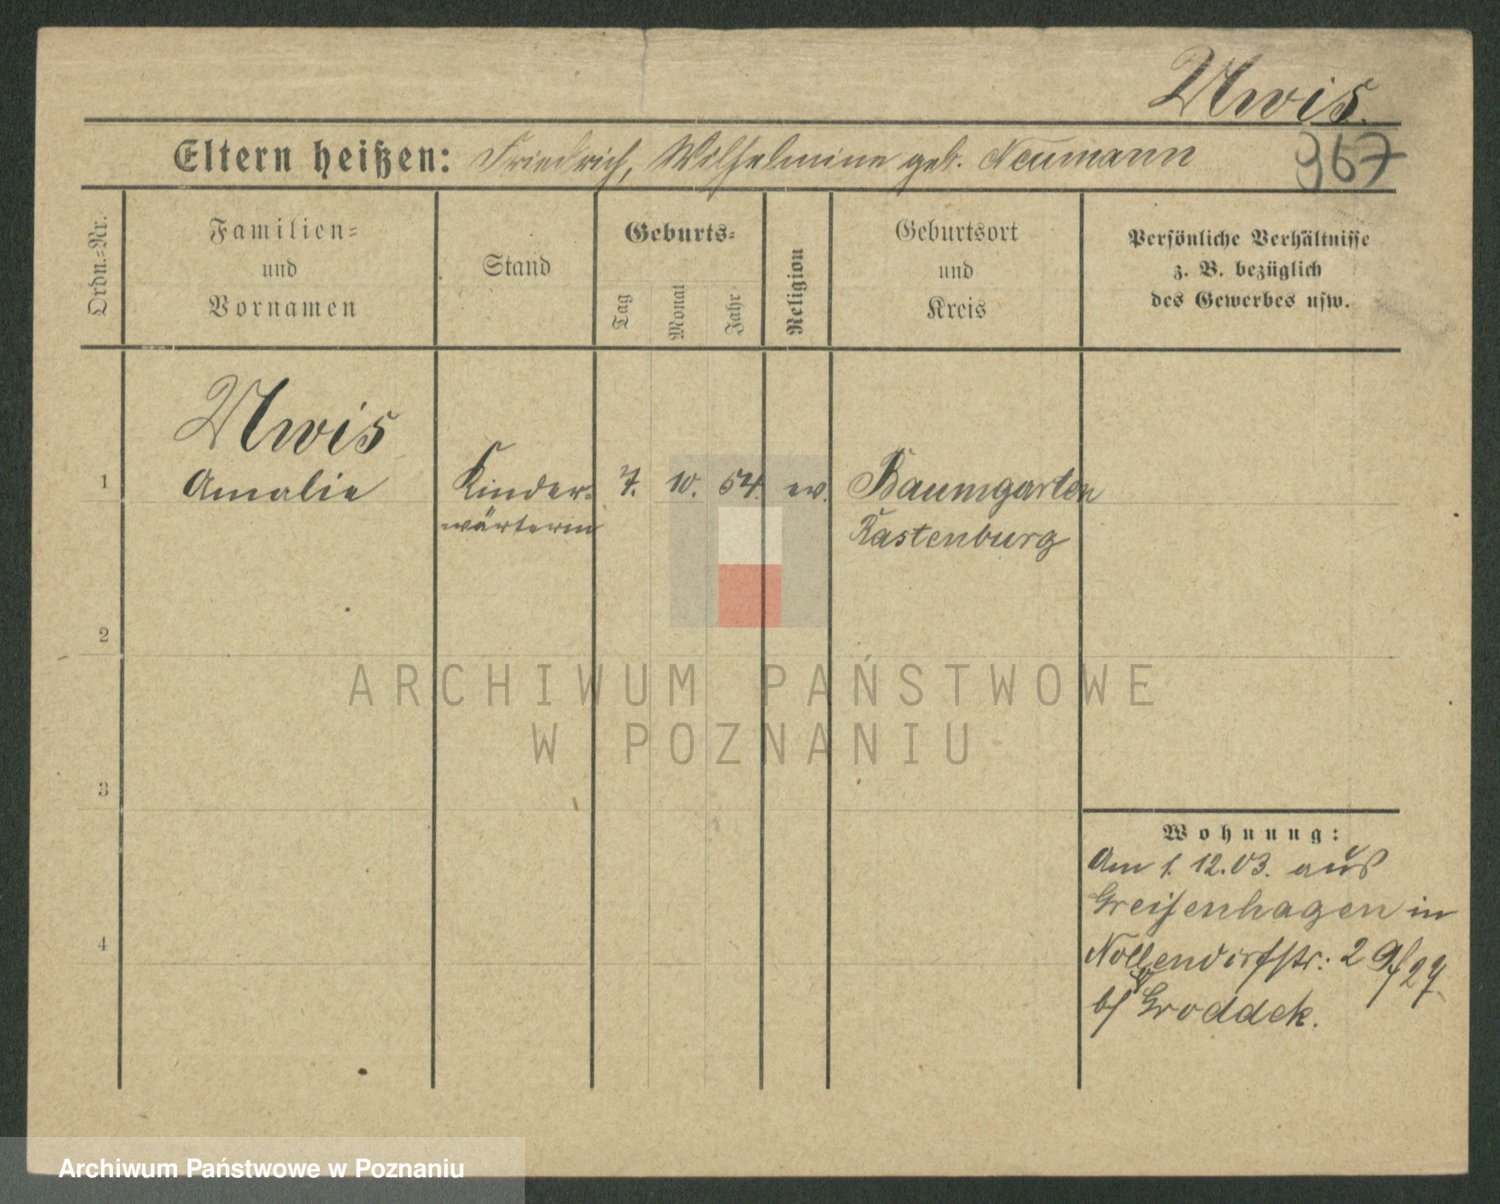 Uwis.
Eltern heißen: Friedrich, Wilhelmine geb. Neumann
967
Ordn.-Nr.
Familien-
und
Vornamen
Stand
Geburts-
Tag
Monat
Jahr
Religion
Geburtsort
und
Kreis
Persönliche Verhältnisse
z. B. bezüglich
des Gewerbes usw.
Uwis
1 Amalie Kinder- 7. 10. 54. ev. Baumgarten
wärterin Rastenburg
2
ARCHIWUM PAŃSTWOWE
W POZNANIU
3
Wohnung:
Am 1. 12.03. aus
Greifenhagen in
Nollendorfstr: 29/27
b/ Groddek.
4
Archiwum Państwowe w Poznaniu